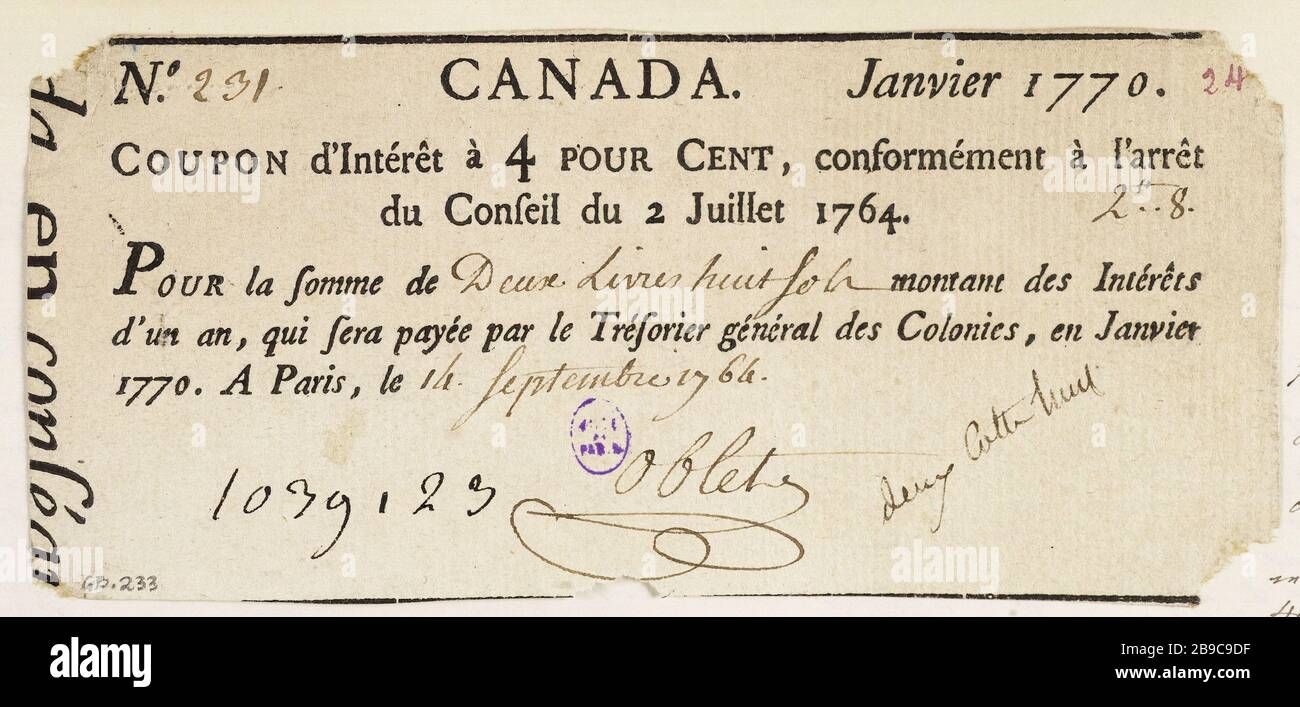 N.º 231. CANADA. Janvier 1770. 24
COUPON d'Intérêt à 4 POUR CENT, conformément à l'arrêt
du Conſeil du 2 Juillet 1764. 2.tt.8.
POUR la ſomme de Deux Livres huit ſols montant des Intérêts
d'un an, qui ſera payée par le Tréſorier général des Colonies, en Janvier
1770. A Paris, le 14. Septembre 1764.
1039123
PAR
GP.233
alamy
Image ID: 2B9C9DF
www.alamy.com